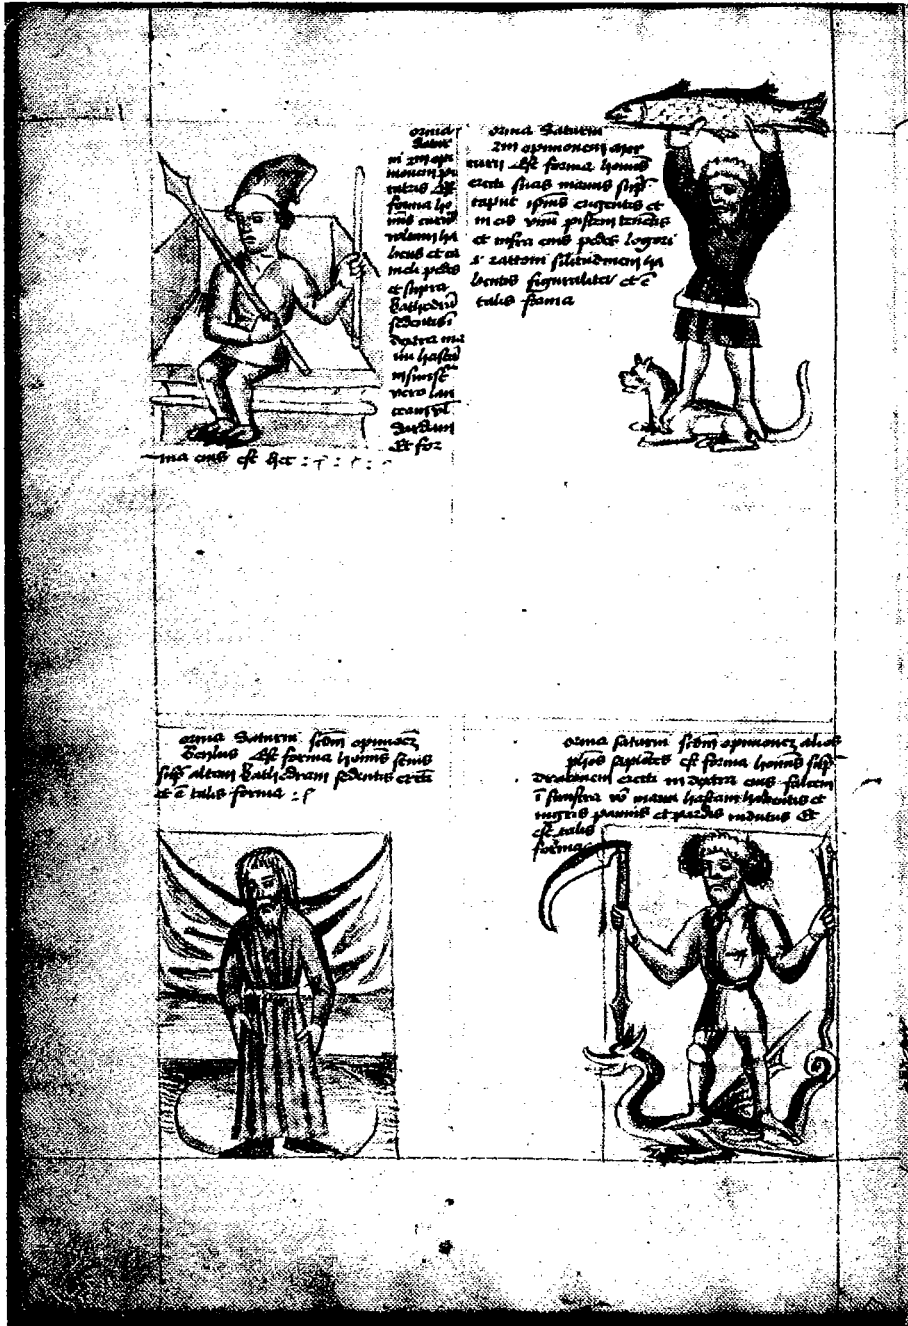 orma
Satur
ni zm opi
nionem pi
catris Est
forma ho
mis
vultum ha
bens et ca
meli pedes
et supra
Cathedram
sedentis ī
dextra ma
nu hastam
in sinist
vero lan
ceam vl
dardum
Et for
ma eius est hec
orma Saturni
zm opinionem
Est forma homīs
erecti suas manus sup
caput ipīus erigentis et
in eis vnū piscem tenētis
et infra eius pedes
similitudinem ha
bentis figuraliter et ē
talis forma
orma Saturni scdm opinionē
Est forma homīs senis
sup altam Cathedram sedentis erectī
et ē talis forma
orma saturni scdm opinionē alioꝝ
sapiētes est forma homīs sup
draconem erecti in dextra eius falcem
ī sinistra vo manu hastam habentis et
nigris pannis et pardis induti Et
est talis
forma